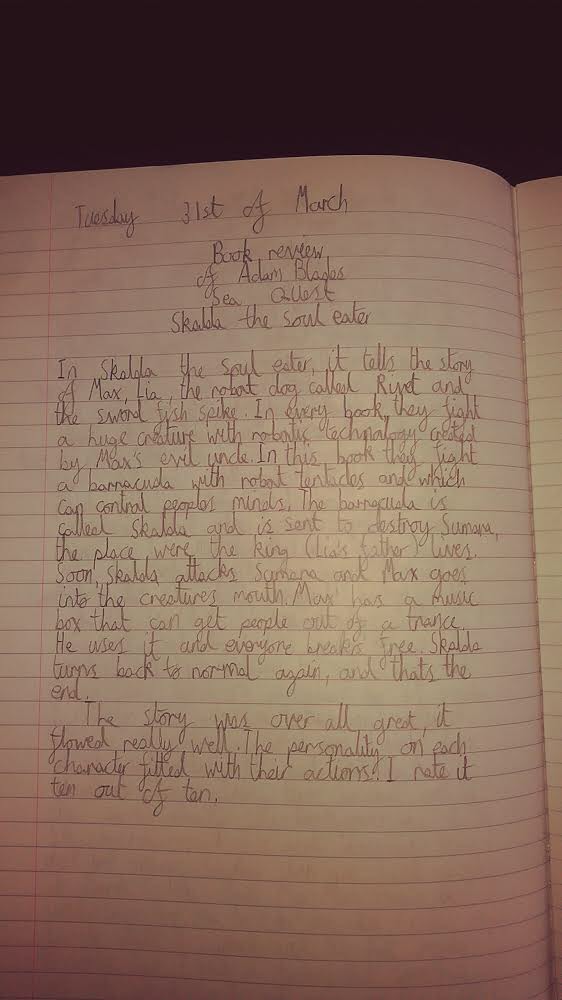 Tuesday 31st of March
Book review
of Adam Blades
Sea Quest
Skalda the soul eater
In Skalda the soul eater, it tells the story
of Max, Lia, the robot dog called Rivet and
the sword fish spike. In every book, they fight
a huge creature with robotic technology created
by Max's evil uncle. In this book they fight
a barracuda with robot tentacles and which
can control peoples minds. The barracuda is
called Skalda and is sent to destroy Sumara,
the place were the King (Lia's father) lives.
Soon, Skalda attacks Sumara and Max goes
into the creatures mouth. Max has a music
box that can get people out of a trance.
He uses it and everyone breakes free. Skalda
turns back to normal again, and thats the
end.
The story was over all great, it
flowed really well. The personality on each
character fitted with their actions. I rate it
ten out of ten.